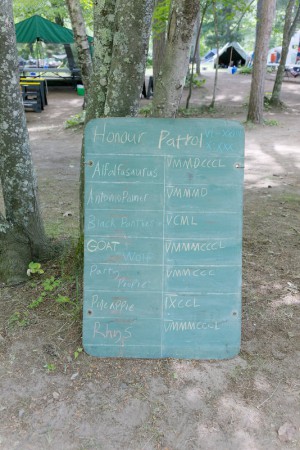 Honour Patrol
Alfalfasaurus V̄MMDCCCL
Antonio Pamer V̄MMMD
Black Panthers V̄CML
GOAT Wolf V̄MMMCCCL
Party People V̄MMCCC
Pineapple IX̄CCL
Rhys V̄MMMCCCL